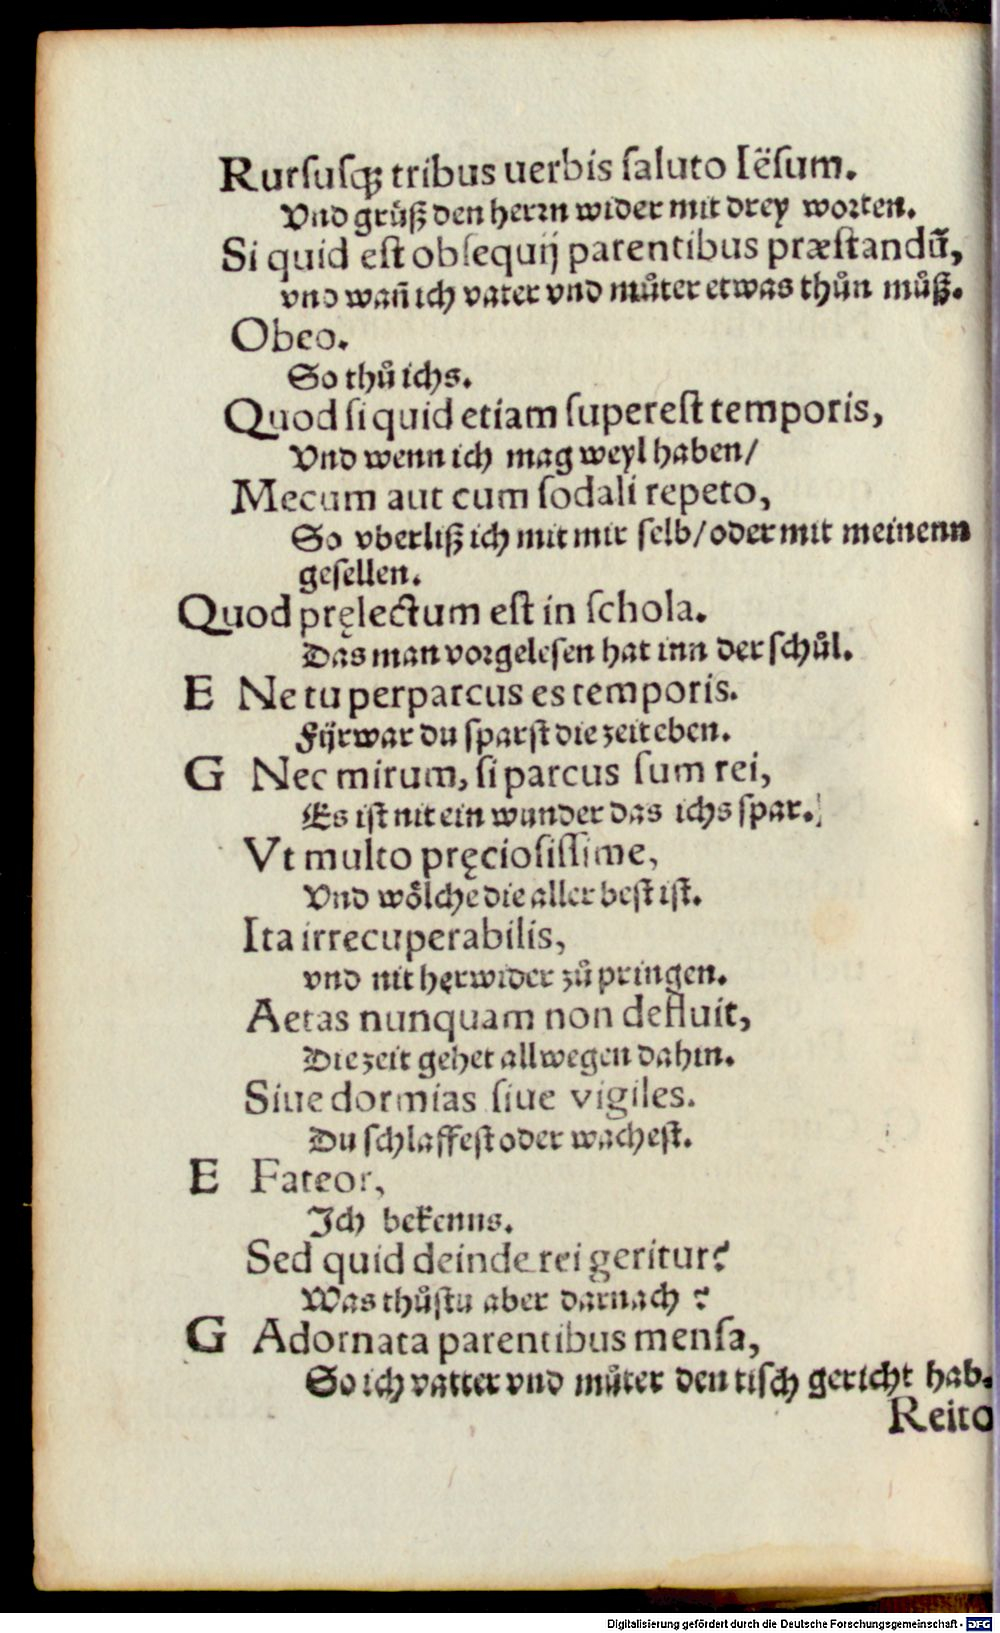 Rurſusqꝫ tribus uerbis ſaluto Iëſum.
Vnd grüß den herrn wider mit drey worten.
Si quid eſt obſequij parentibus præſtandū,
vnd wañ ich vater vnd můter etwas thůn můß.
Obeo.
So thů ichs.
Quod ſi quid etiam ſupereſt temporis,
Vnd wenn ich mag weyl haben/
Mecum aut cum ſodali repeto,
So vberliß ich mit mir ſelb/oder mit meinenn
geſellen.
Quod pręlectum eſt in ſchola.
Das man vorgeleſen hat inn der ſchůl.
E Ne tu perparcus es temporis.
Fijrwar du ſparſt die zeit eben.
G Nec mirum, ſi parcus ſum rei,
Es iſt nit ein wunder das ichs ſpar.
Vt multo pręcioſiſſime,
Vnd woͤlche die aller beſt iſt.
Ita irrecuperabilis,
vnd nit herwider zů pringen.
Aetas nunquam non defluit,
Die zeit gehet allwegen dahin.
Siue dormias ſiue vigiles.
Du ſchlaffeſt oder wacheſt.
E Fateor,
Ich bekenns.
Sed quid deinde rei geritur?
Was thůſtu aber darnach ?
G Adornata parentibus menſa,
So ich vatter vnd můter den tiſch gericht hab.
Reito
Digitalisierung gefördert durch die Deutsche Forschungsgemeinschaft - DFG